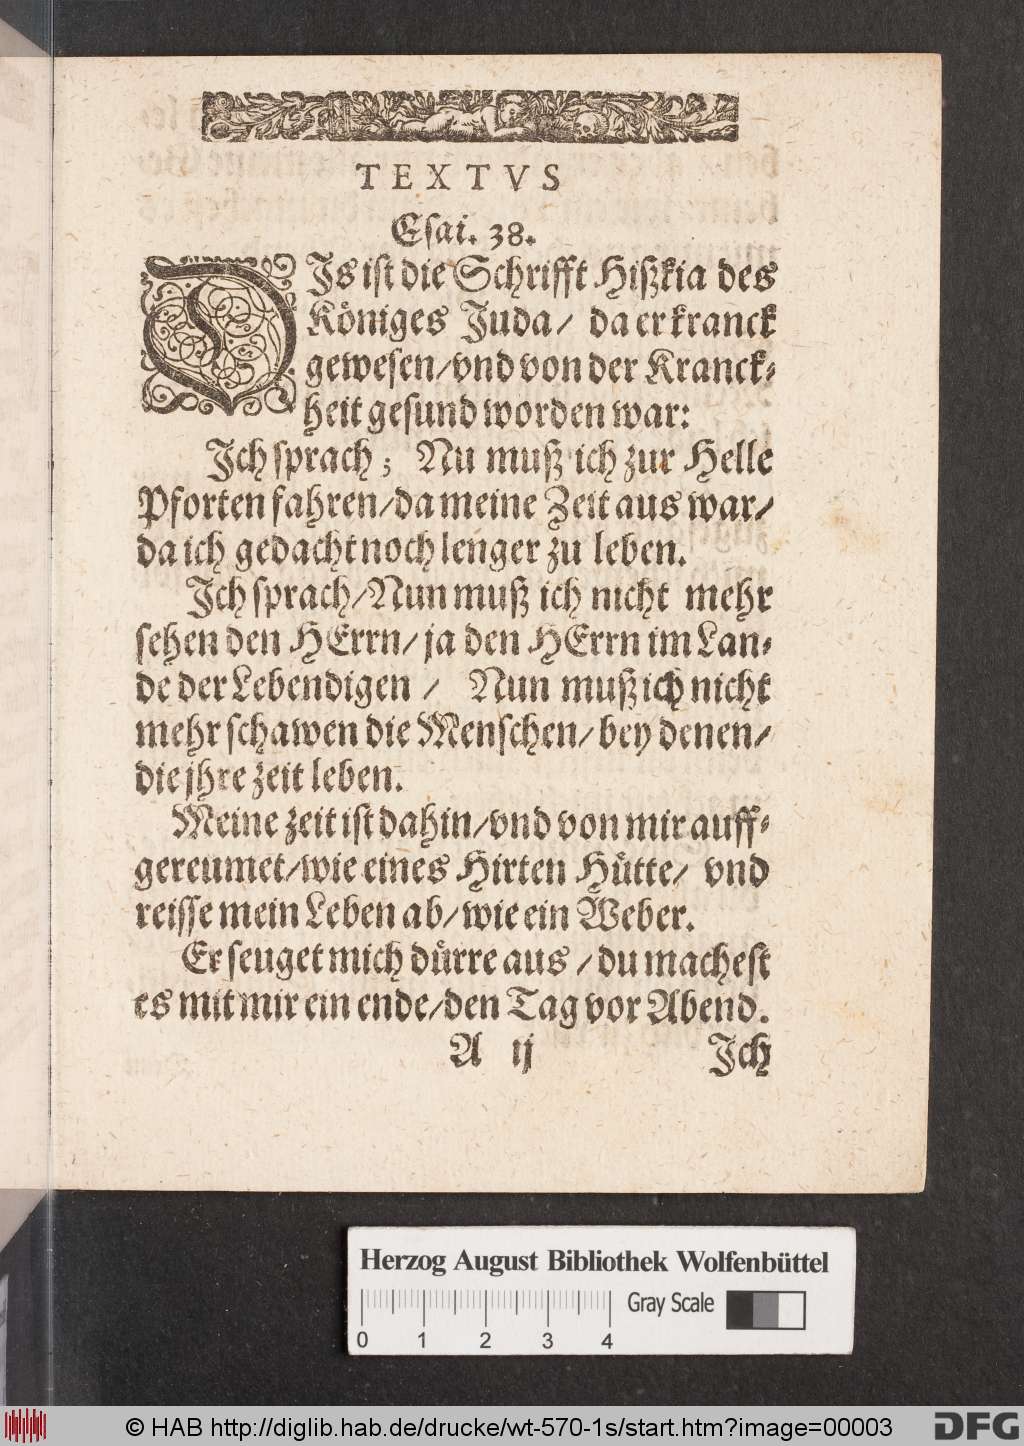 TEXTVS
Esai. 38.
DJs ist die Schrifft Hißkia des
Königes Juda/ da er kranck
gewesen/vnd von der Kranck-
heit gesund worden war:
Jch sprach; Nu muß ich zur Helle
Pforten fahren/da meine Zeit aus war/
da ich gedacht noch lenger zu leben.
Jch sprach/Nun muß ich nicht mehr
sehen den HErrn/ ja den HErrn im Lan-
de der Lebendigen / Nun muß ich nicht
mehr schawen die Menschen/ bey denen/
die jhre zeit leben.
Meine zeit ist dahin/vnd von mir auff-
gereumet/wie eines Hirten Hütte/ vnd
reisse mein Leben ab/ wie ein Weber.
Er seuget mich dürre aus / du machest
es mit mir ein ende/den Tag vor Abend.
A ij Jch
Herzog August Bibliothek Wolfenbüttel
Gray Scale
0 1 2 3 4
© HAB http://diglib.hab.de/drucke/wt-570-1s/start.htm?image=00003
DFG